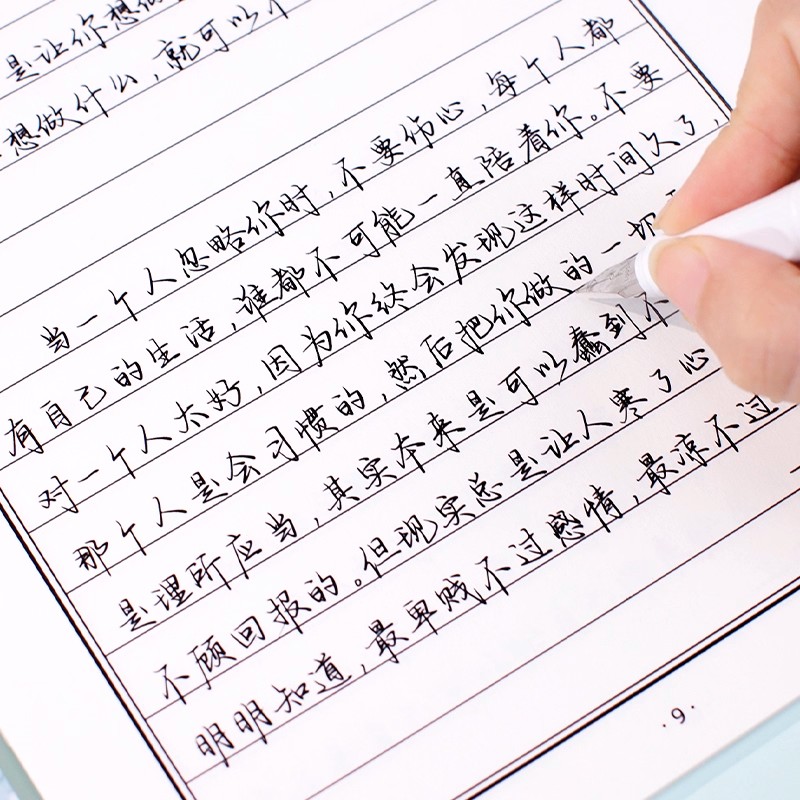 是让你想做
想做什么，就可以不
当一个人忽略你时，不要伤心，每个人都
有自己的生活，谁都不可能一直陪着你。不要
对一个人太好，因为你终会发现这样时间久了，
那个人是会习惯的，然后把你做的一切
是理所应当，其实本来是可以蠢到不
不顾回报的。但现实总是让人寒了心
明明知道，最卑贱不过感情，最凉不过
·9·